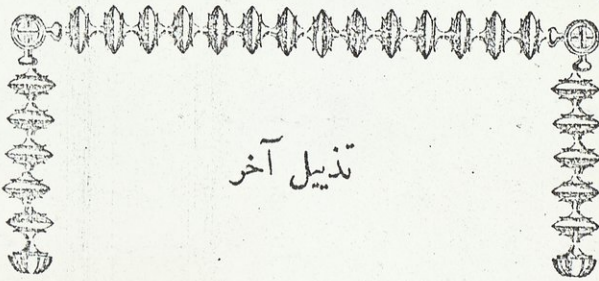 تذييل آخر